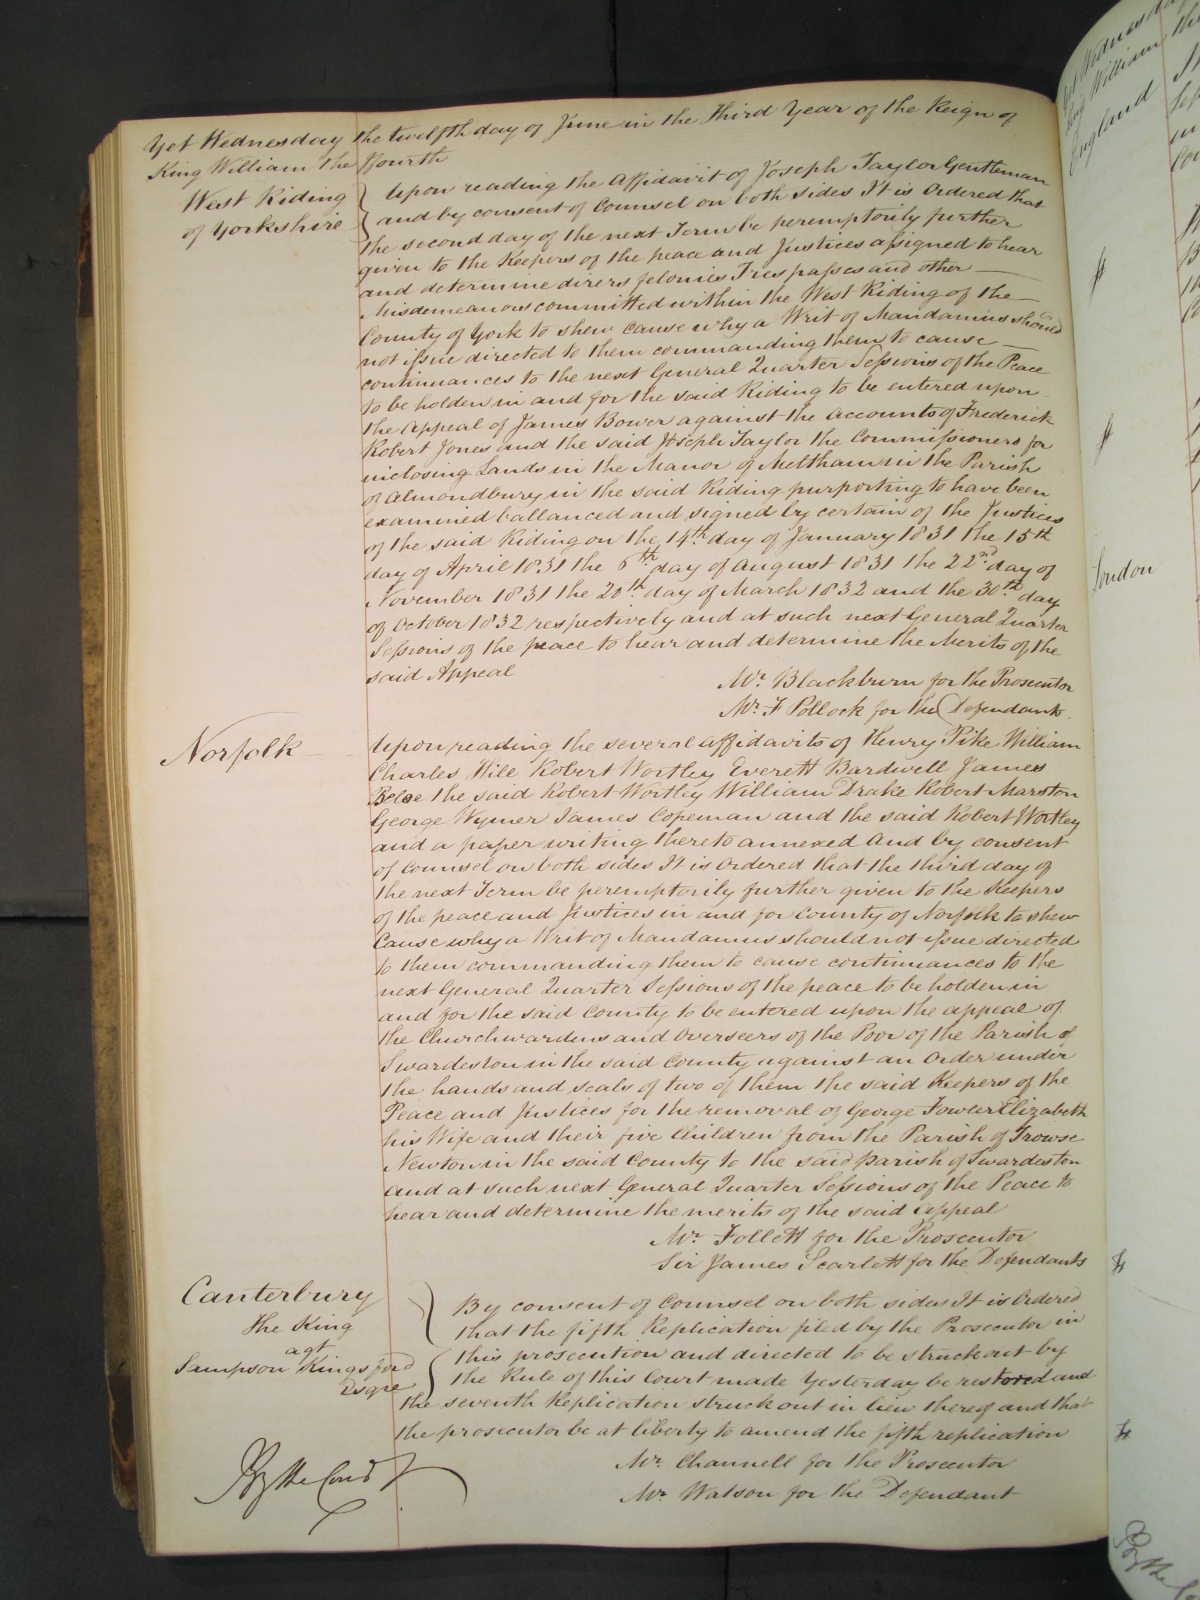 Yet Wednesday the twelfth day of June in the Third Year of the Reign of
King William the Fourth
West Riding
of Yorkshire
Upon reading the Affidavit of Joseph Taylor Gentleman
and by consent of Counsel on both sides It is Ordered that
the second day of the next Term be peremptorily further
given to the Keepers of the peace and Justices assigned to hear
and determine divers felonies Trespasses and other
Misdemeanors committed within the West Riding of the
County of York to shew cause why a Writ of Mandamus should
not issue directed to them commanding them to cause
continuances to the next General Quarter Sessions of the Peace
to be holden in and for the said Riding to be entered upon
the Appeal of James Bower against the Accounts of Frederick
Robert Jones and the said Joseph Taylor the Commissioners for
inclosing Lands in the Manor of Meltham in the Parish
of Almondbury in the said Riding purporting to have been
examined ballanced and signed by certain of the Justices
of the said Riding on the 14th day of January 1831 the 15th
day of April 1831 the 6th day of August 1831 the 22nd day of
November 1831 the 20th day of March 1832 and the 30th day
of October 1832 respectively and at such next General Quarter
Sessions of the peace to hear and determine the Merits of the
said Appeal
Mr. Blackburn for the Prosecutor
Mr. F Pollock for the Defendants.
Norfolk
Upon reading the several affidavits of Henry Pike William
Charles Hill Robert Wortley Everett Bardwell James
Beloe the said Robert Wortley William Drake Robert Marston
George Wymer James Copeman and the said Robert Wortley
and a paper writing thereto annexed And by consent
of Counsel on both sides It is Ordered that the third day of
the next Term be peremptorily further given to the Keepers
of the peace and Justices in and for County of Norfolk to shew
Cause why a Writ of Mandamus should not issue directed
to them commanding them to cause continuances to the
next General Quarter Sessions of the peace to be holden in
and for the said County to be entered upon the appeal of
the Churchwardens and Overseers of the Poor of the Parish of
Swardeston in the said County against an Order under
the hands and seals of two of them the said Keepers of the
Peace and Justices for the removal of George Fowler Elizabeth
his Wife and their five Children from the Parish of Trowse
Newton in the said County to the said parish of Swardeston
and at such next General Quarter Sessions of the Peace to
hear and determine the merits of the said appeal
Mr. Follett for the Prosecutor
Sir James Scarlett for the Defendants
Canterbury
The King
agt
Sampson Kingsford
Esqre
By consent of Counsel on both sides It is Ordered
that the fifth Replication filed by the Prosecutor in
this prosecution and directed to be struck out by
the Rule of this Court made Yesterday be restored and
the seventh Replication struck out in lieu thereof and that
the prosecutor be at liberty to amend the fifth replication
Mr. Channell for the Prosecutor
Mr. Watson for the Defendant
By the Court
Yet Wednesday
King William the
England
London
By the